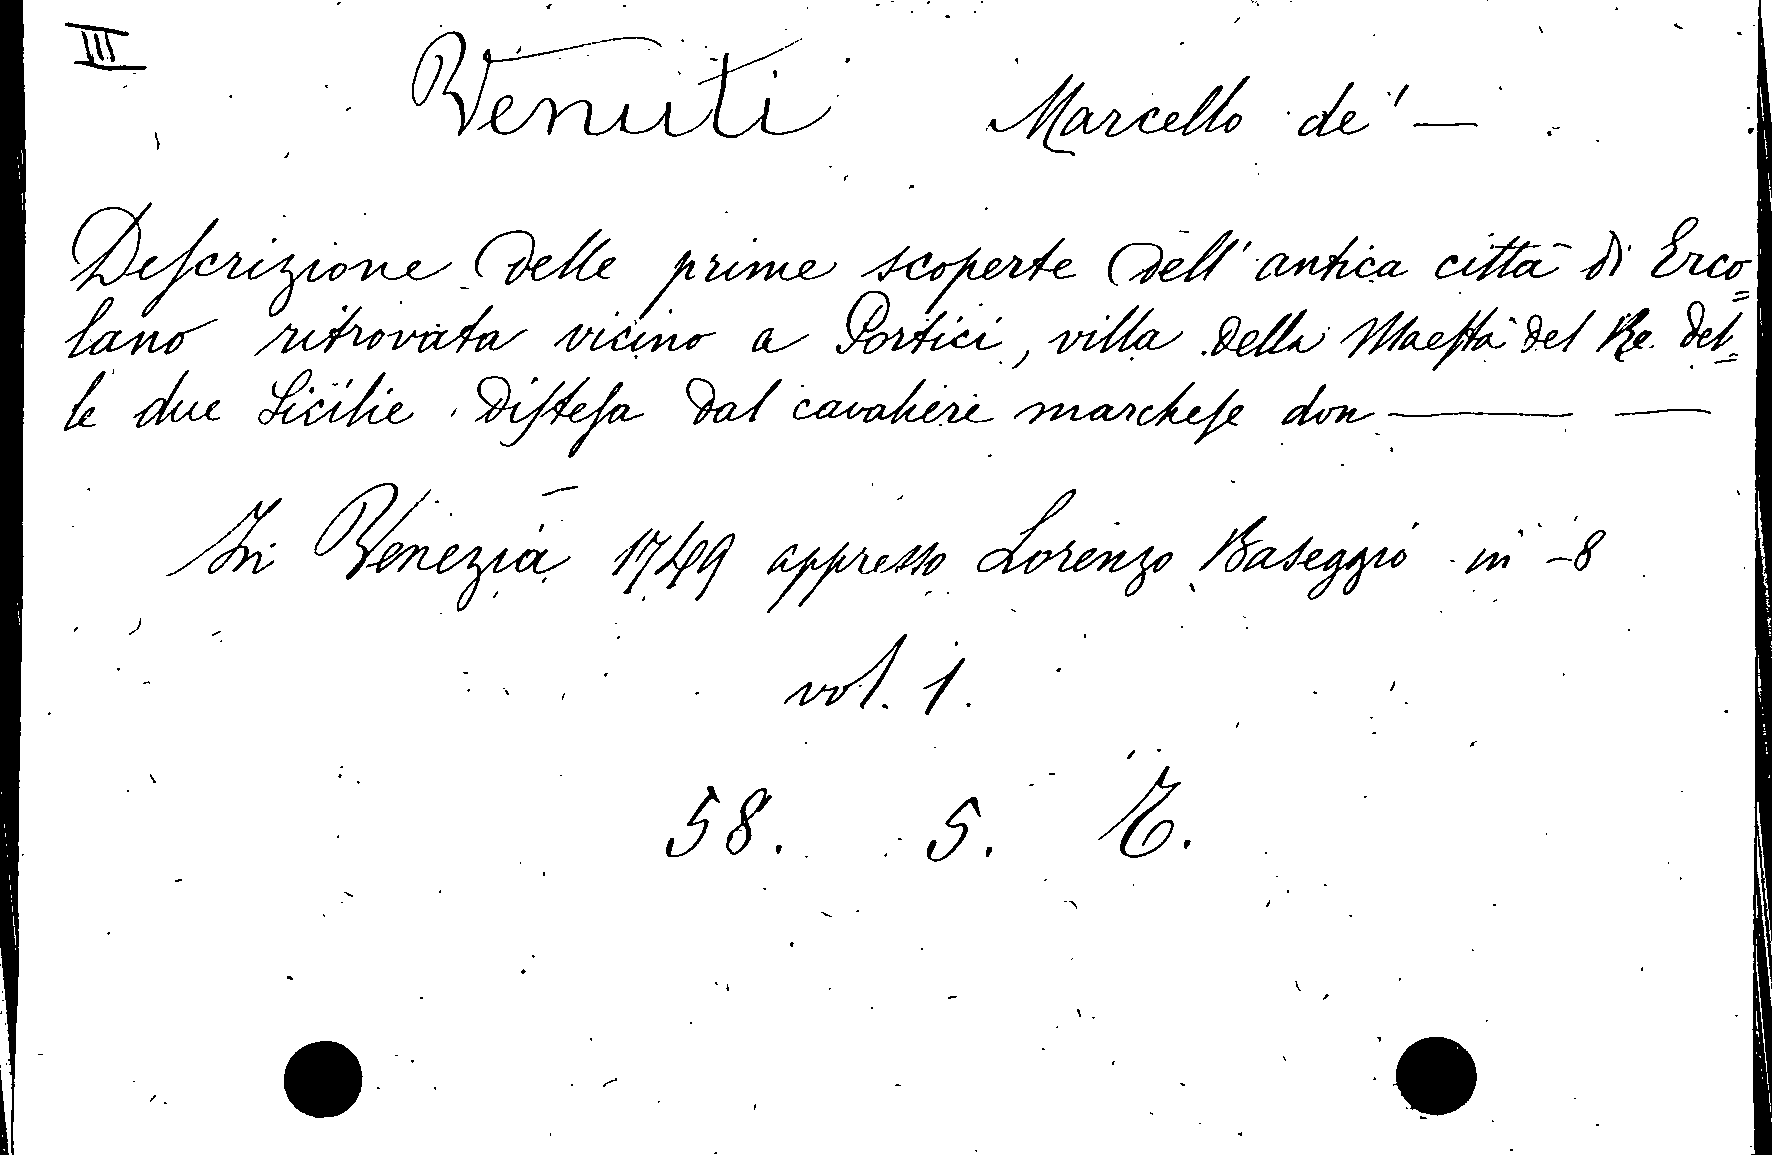 III
Venuti Marcello de' —
Deſcrizione delle prime scoperte dell' antica città di Erco=
lano ritrovata vicino a Portici, villa della Maeſtà del Re del=
le due Sicilie. Diſteſa dal cavaliere marcheſe don — —
In Venezia 1749 appresso Lorenzo Baseggio in -8
vol. 1.
58. 5. E.